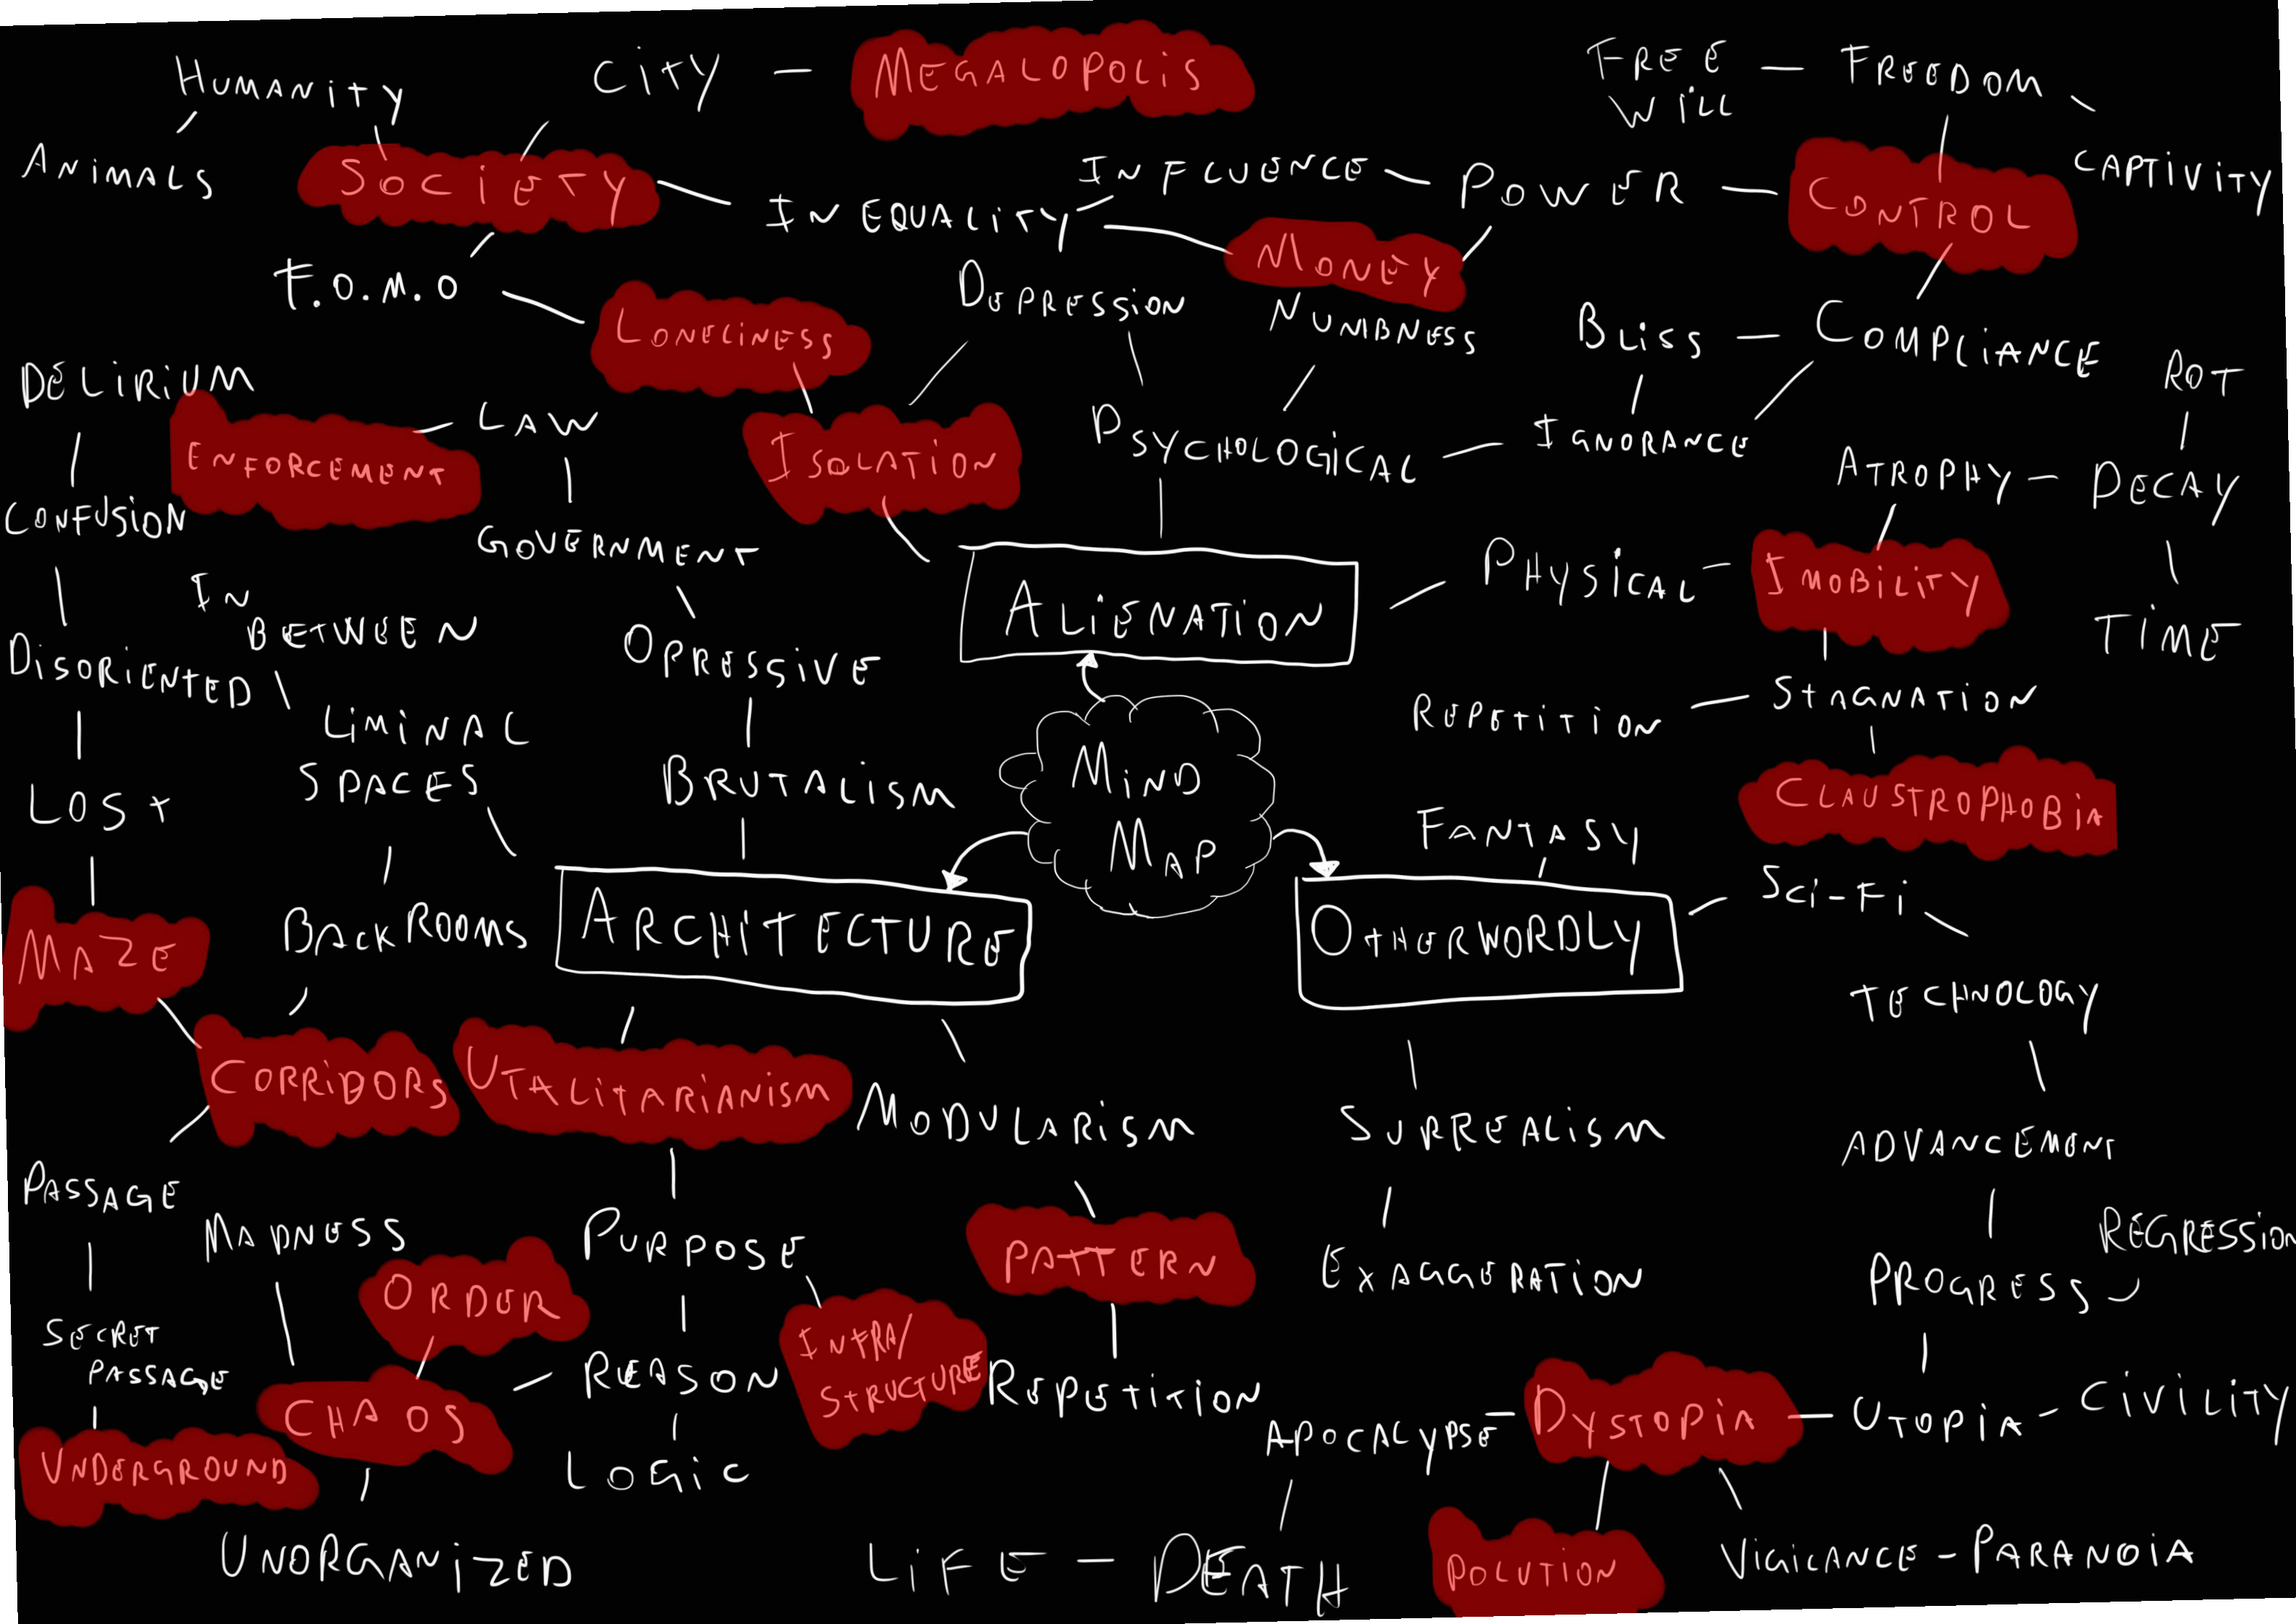 HUMANITY
CITY - MEGALOPOLIS
FREE WILL - FREEDOM
ANIMALS
SOCIETY
INEQUALITY
INFLUENCE - POWER - CONTROL
CAPTIVITY
F.O.M.O
LONELINESS
DEPRESSION
MONEY
NUMBNESS
BLISS - COMPLIANCE
ROT
DELIRIUM
ENFORCEMENT - LAW
ISOLATION
PSYCHOLOGICAL - IGNORANCE
ATROPHY - DECAY
CONFUSION
GOVERNMENT
ALIENATION
PHYSICAL - IMOBILITY
TIME
IN BETWEEN
DISORIENTED
OPRESSIVE
LIMINAL
SPACES
REPETITION - STAGNATION
MIND
MAP
BRUTALISM
LOST
FANTASY
CLAUSTROPHOBIA
MAZE
BACKROOMS
ARCHITECTURE
OTHERWORDLY
SCI-FI
TECHNOLOGY
CORRIDORS
UTALITARIANISM
MODULARISM
SURREALISM
ADVANCEMENT
PASSAGE
MADNESS
PURPOSE
PATTERN
EXAGGERATION
PROGRESS
REGRESSION
ORDER
SECRET
PASSAGE
CHAOS - REASON
INFRA/
STRUCTURE
REPETITION
APOCALYPSE - DYSTOPIA - UTOPIA - CIVILITY
UNDERGROUND
LOGIC
UNORGANIZED
LIFE - DEATH
POLUTION
VIGILANCE - PARANOIA